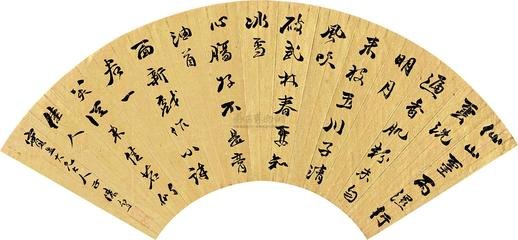 仙山靈雨濕行
雲洗
遍香肌粉未勻
明月
来投玉川子清
風吹
破武林春要知
冰雪
心腸好不是膏
油首
面新戲作小詩
君一
笑從来佳茗似
佳人